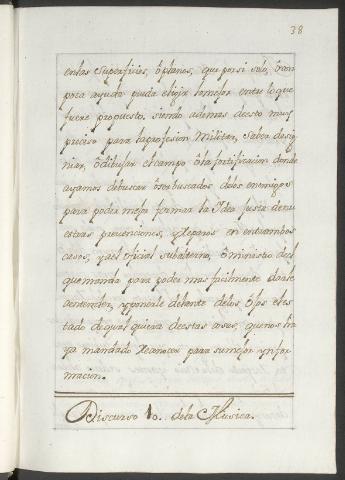 38
enlas superficies, ò planos, que porsi solo, ò con
poca ayuda pueda eligir lomejor entre loque
fuere propuesto, siendo ademas deesto muy
preciso para laprofesion Militar, saber desig
niar, ò dibujar elcampo ò la fortificacion donde
ayamos debuscar ò ser buscados delos enemigos
para poder mejor formar la Idea justa denu
estras prevenciones, y Reparos en entrambos
casos, y a el oficial subalterno, ò ministro de el
quemanda para poder mas facilmente darse
aentender, y ponerle delante delos ojos el es
tado de qual quiera deestas cosas, queños ha
ya mandado Reconocer para sumejor ynfor
macion.
Discurso 10. dela Musica.